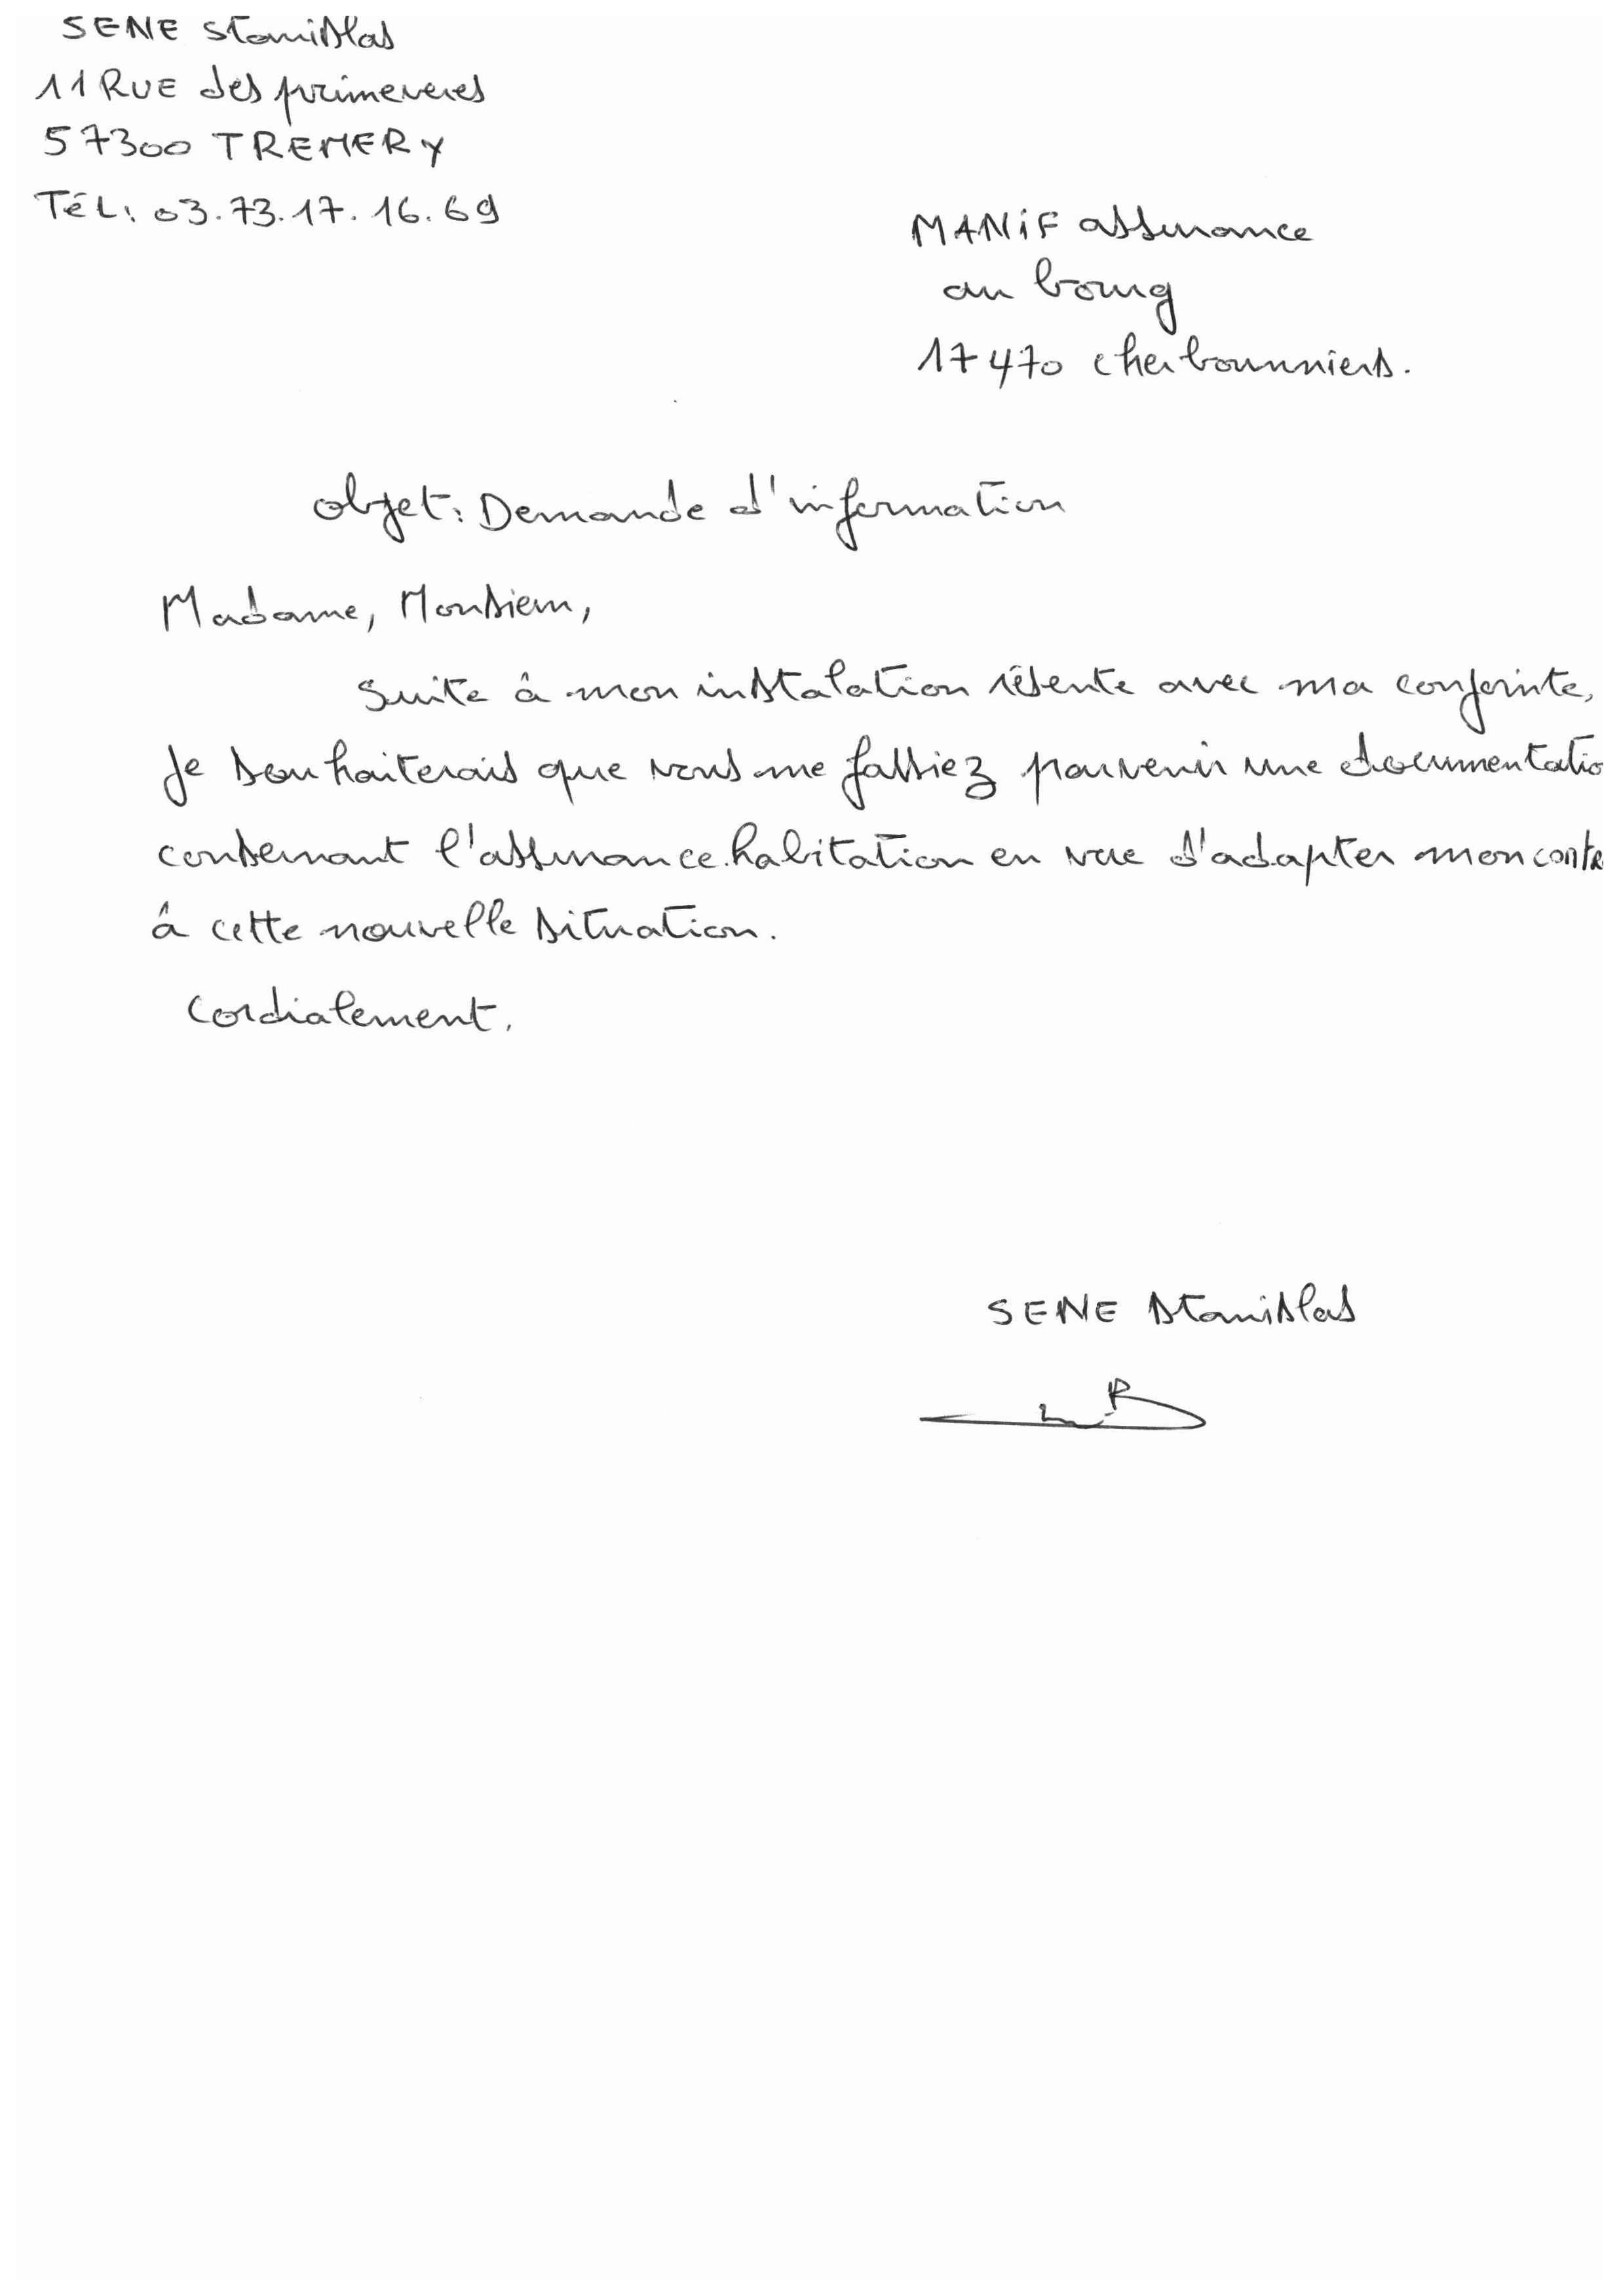 SENE Stanislas
11 RUE des primeveres
57300 TREMERY
TéL: 03.73.17.16.69
MANiF assurance
au bourg
17470 cherbounniers.
objet: Demande d'information
Madame, Monsieur,
Suite à mon instalation résente avec ma conjointe,
Je souhaiterais que vous me fassiez parvenir une documentatio
consernant l'assurance habitation en vue d'adapter mon contr
à cette nouvelle situation.
Cordialement.
SENE Stanislas